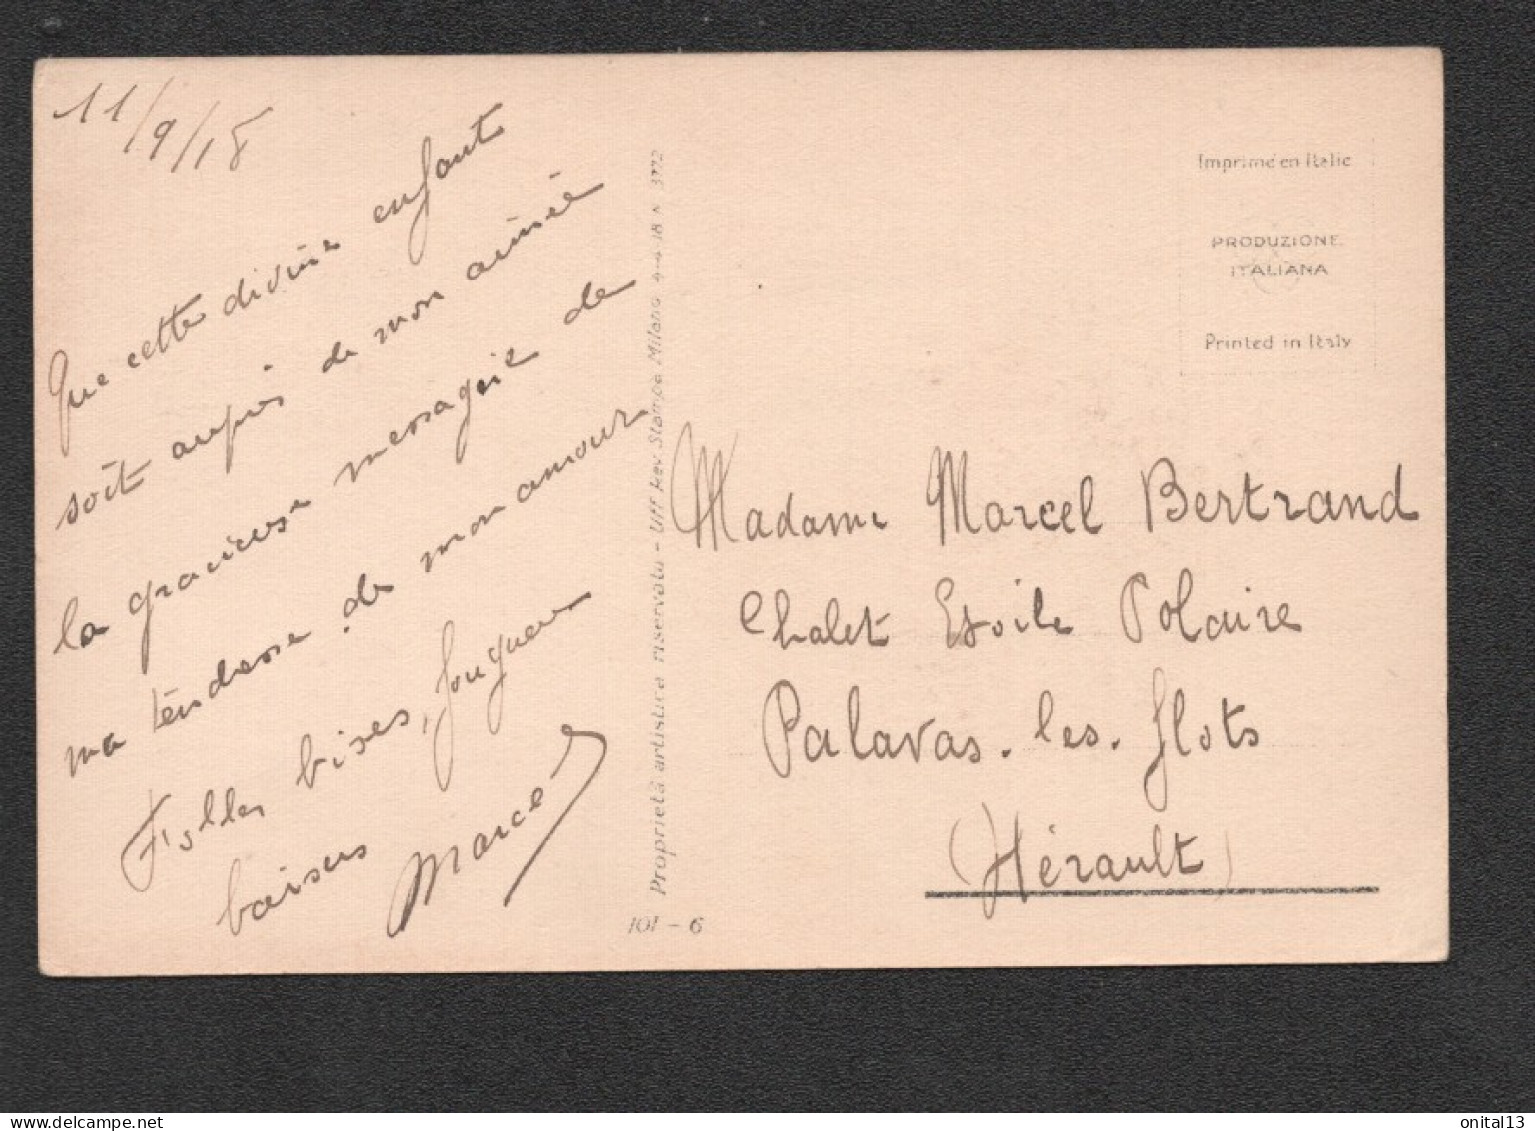 11/9/18
Que cette divine enfant
soit auprès de mon aimée
la gracieuse messagère de
ma tendresse, de mon amour
Folles bises, fougueux
baisers
Marcel
Proprietà artistica riservata - Uff Rev Stampa Milano 9-4-18 N 3772
101 - 6
Imprimé en Italie
PRODUZIONE
ITALIANA
Printed in Italy
Madame Marcel Bertrand
Chalet Etoile Polaire
Palavas-les-flots
(Hérault)
delcampe.net
onital13